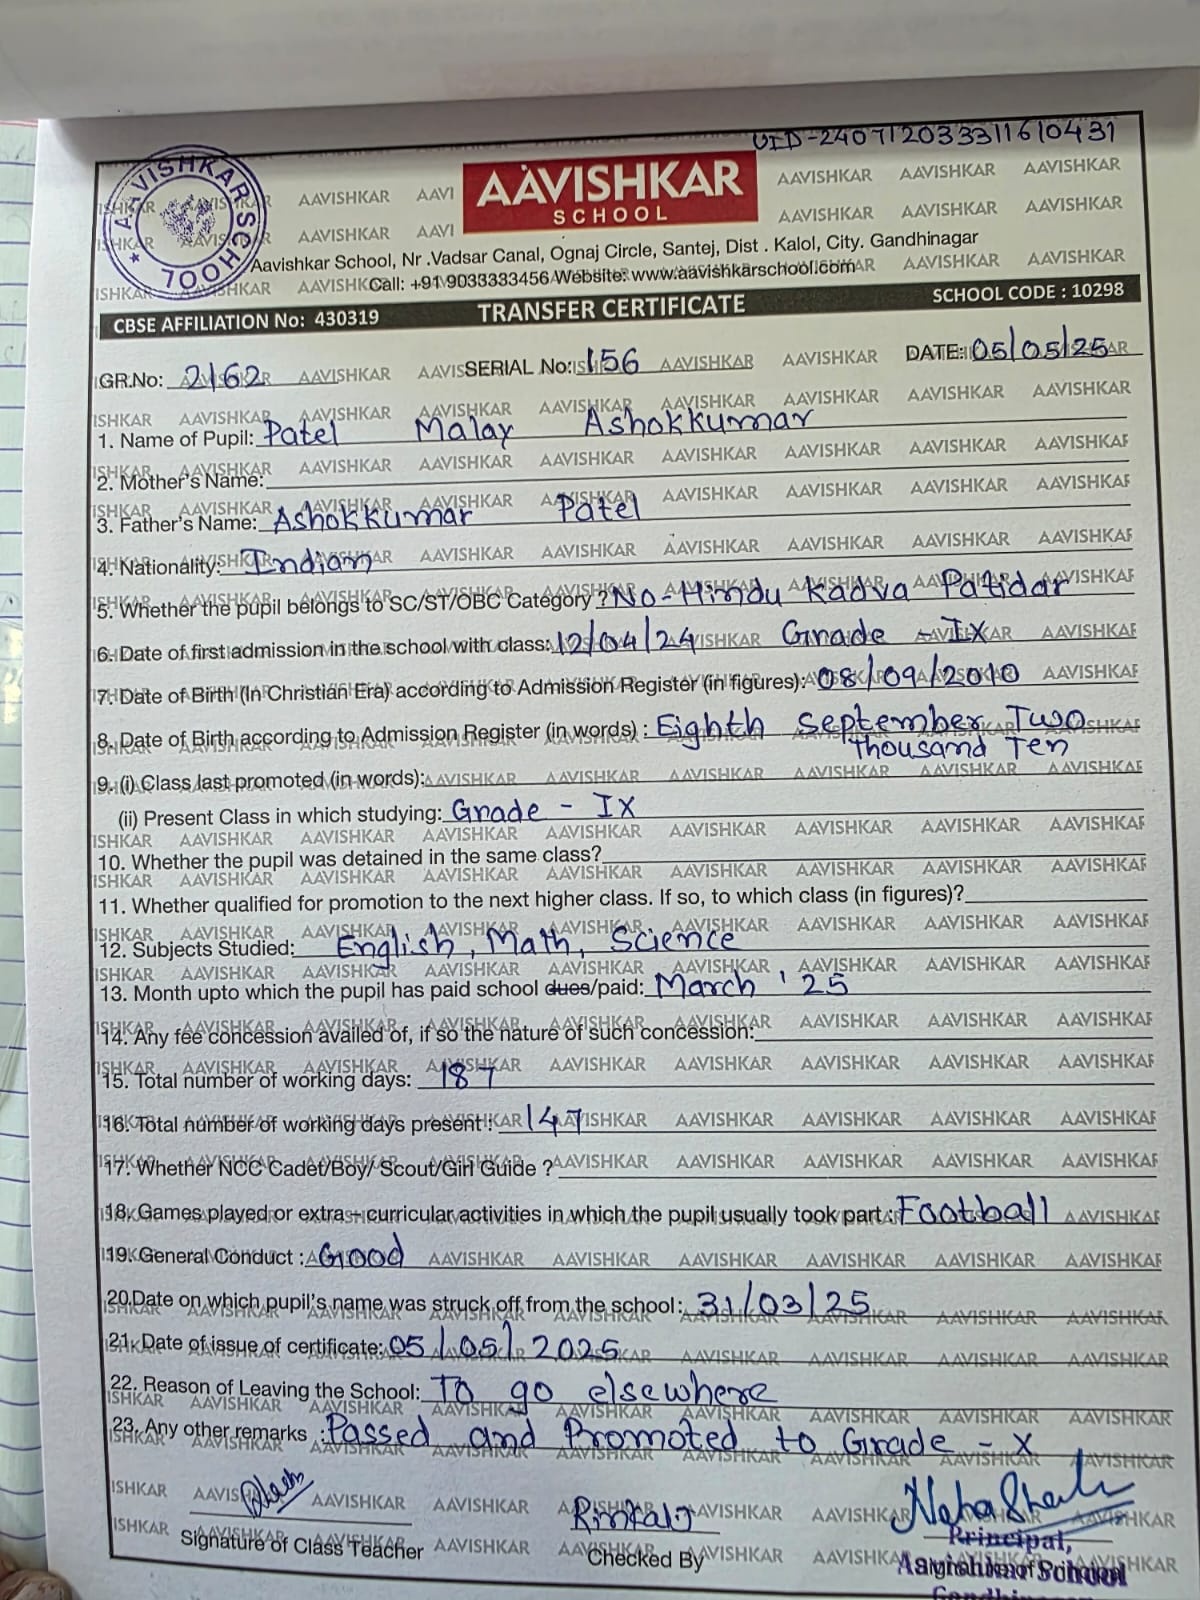 UID-2407120333116 10431
AAVISHKAR SCHOOL
AAVISHKAR
SCHOOL
Aavishkar School, Nr .Vadsar Canal, Ognaj Circle, Santej, Dist . Kalol, City. Gandhinagar
Call: +91 9033333456 Website: www.aavishkarschool.com
CBSE AFFILIATION No: 430319 TRANSFER CERTIFICATE SCHOOL CODE : 10298
GR.No: 2162 SERIAL No: 156 DATE: 05/05/25
1. Name of Pupil: Patel Malay Ashokkumar
2. Mother's Name:
3. Father's Name: Ashokkumar Patel
4. Nationality: Indian
5. Whether the pupil belongs to SC/ST/OBC Category ? No-Hindu Kadva Patidar
6. Date of first admission in the school with class: 12/04/24 Grade - IX
7. Date of Birth (In Christian Era) according to Admission Register (in figures): 08/09/2010
8. Date of Birth according to Admission Register (in words) : Eighth September Two
Thousand Ten
9. (i) Class last promoted (in words):
(ii) Present Class in which studying: Grade - IX
10. Whether the pupil was detained in the same class?
11. Whether qualified for promotion to the next higher class. If so, to which class (in figures)?
12. Subjects Studied: English, Math, Science
13. Month upto which the pupil has paid school dues/paid: March ' 25
14. Any fee concession availed of, if so the nature of such concession:
15. Total number of working days: 187
16. Total number of working days present : 147
17. Whether NCC Cadet/Boy/ Scout/Girl Guide ?
18. Games played or extra – curricular activities in which the pupil usually took part : Football
19. General Conduct : Good
20.Date on which pupil's name was struck off from the school: 31/03/25
21. Date of issue of certificate: 05/05/2025
22. Reason of Leaving the School: To go elsewhere
23. Any other remarks : Passed and Promoted to Grade - X
Rinkal Neha Shah
Signature of Class Teacher Checked By Principal,